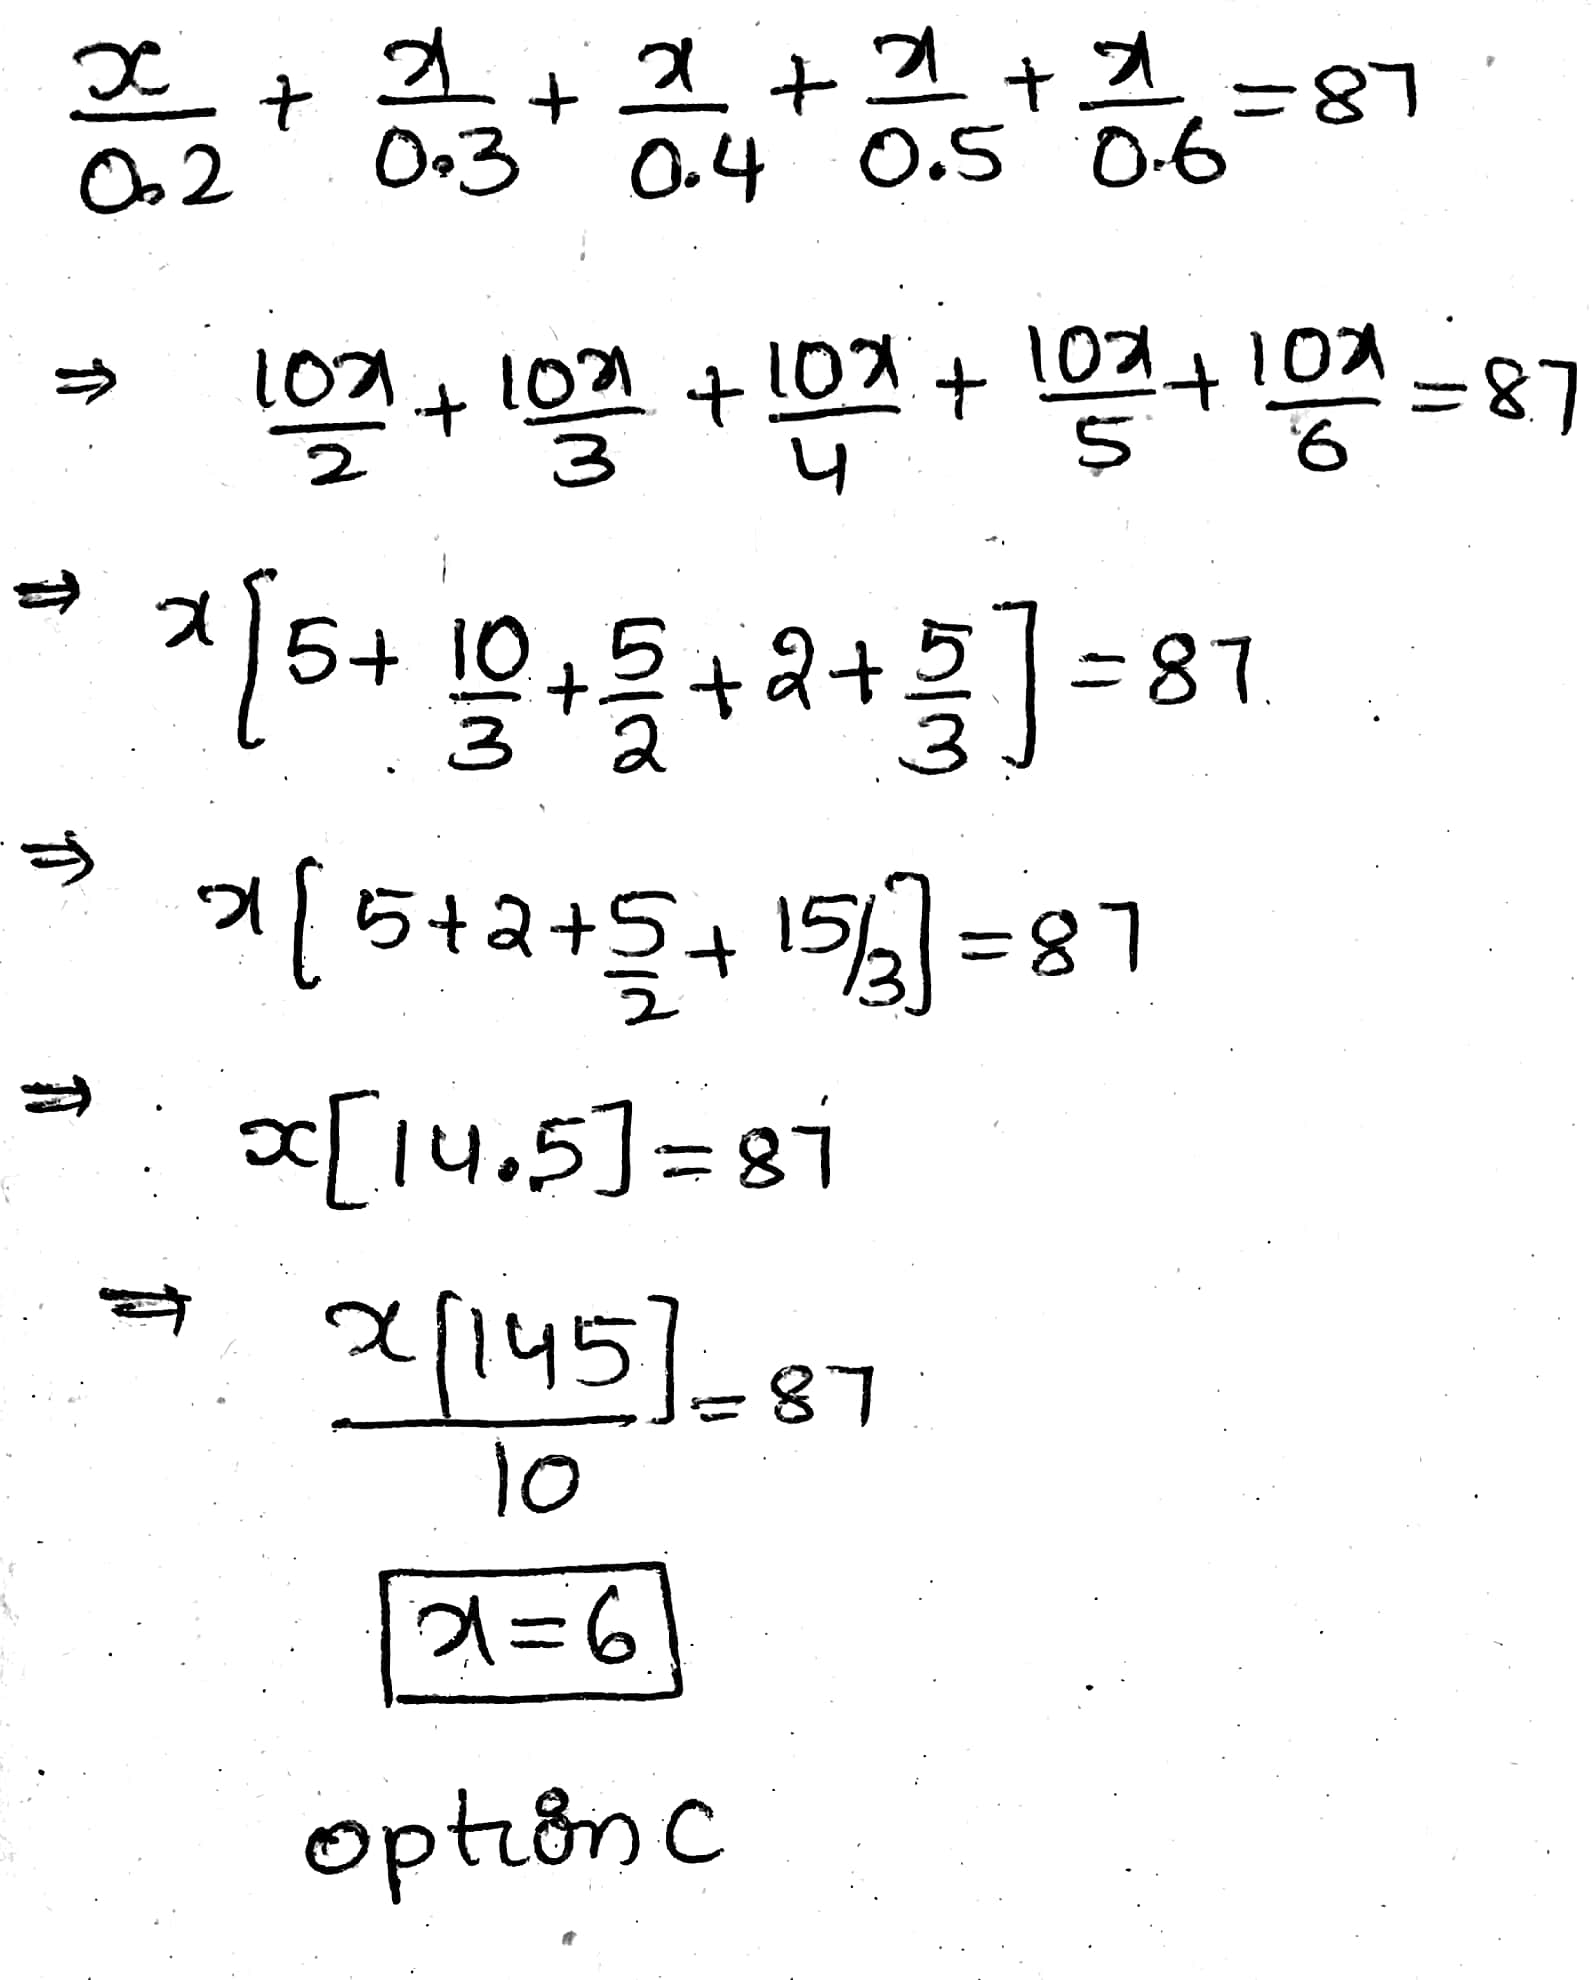 x/0.2 + x/0.3 + x/0.4 + x/0.5 + x/0.6 = 87
⇒ 10x/2 + 10x/3 + 10x/4 + 10x/5 + 10x/6 = 87
⇒ x[5 + 10/3 + 5/2 + 2 + 5/3] = 87
⇒ x[5 + 2 + 5/2 + 15/3] = 87
⇒ x[14.5] = 87
⇒ x[145]/10 = 87
x = 6
option C